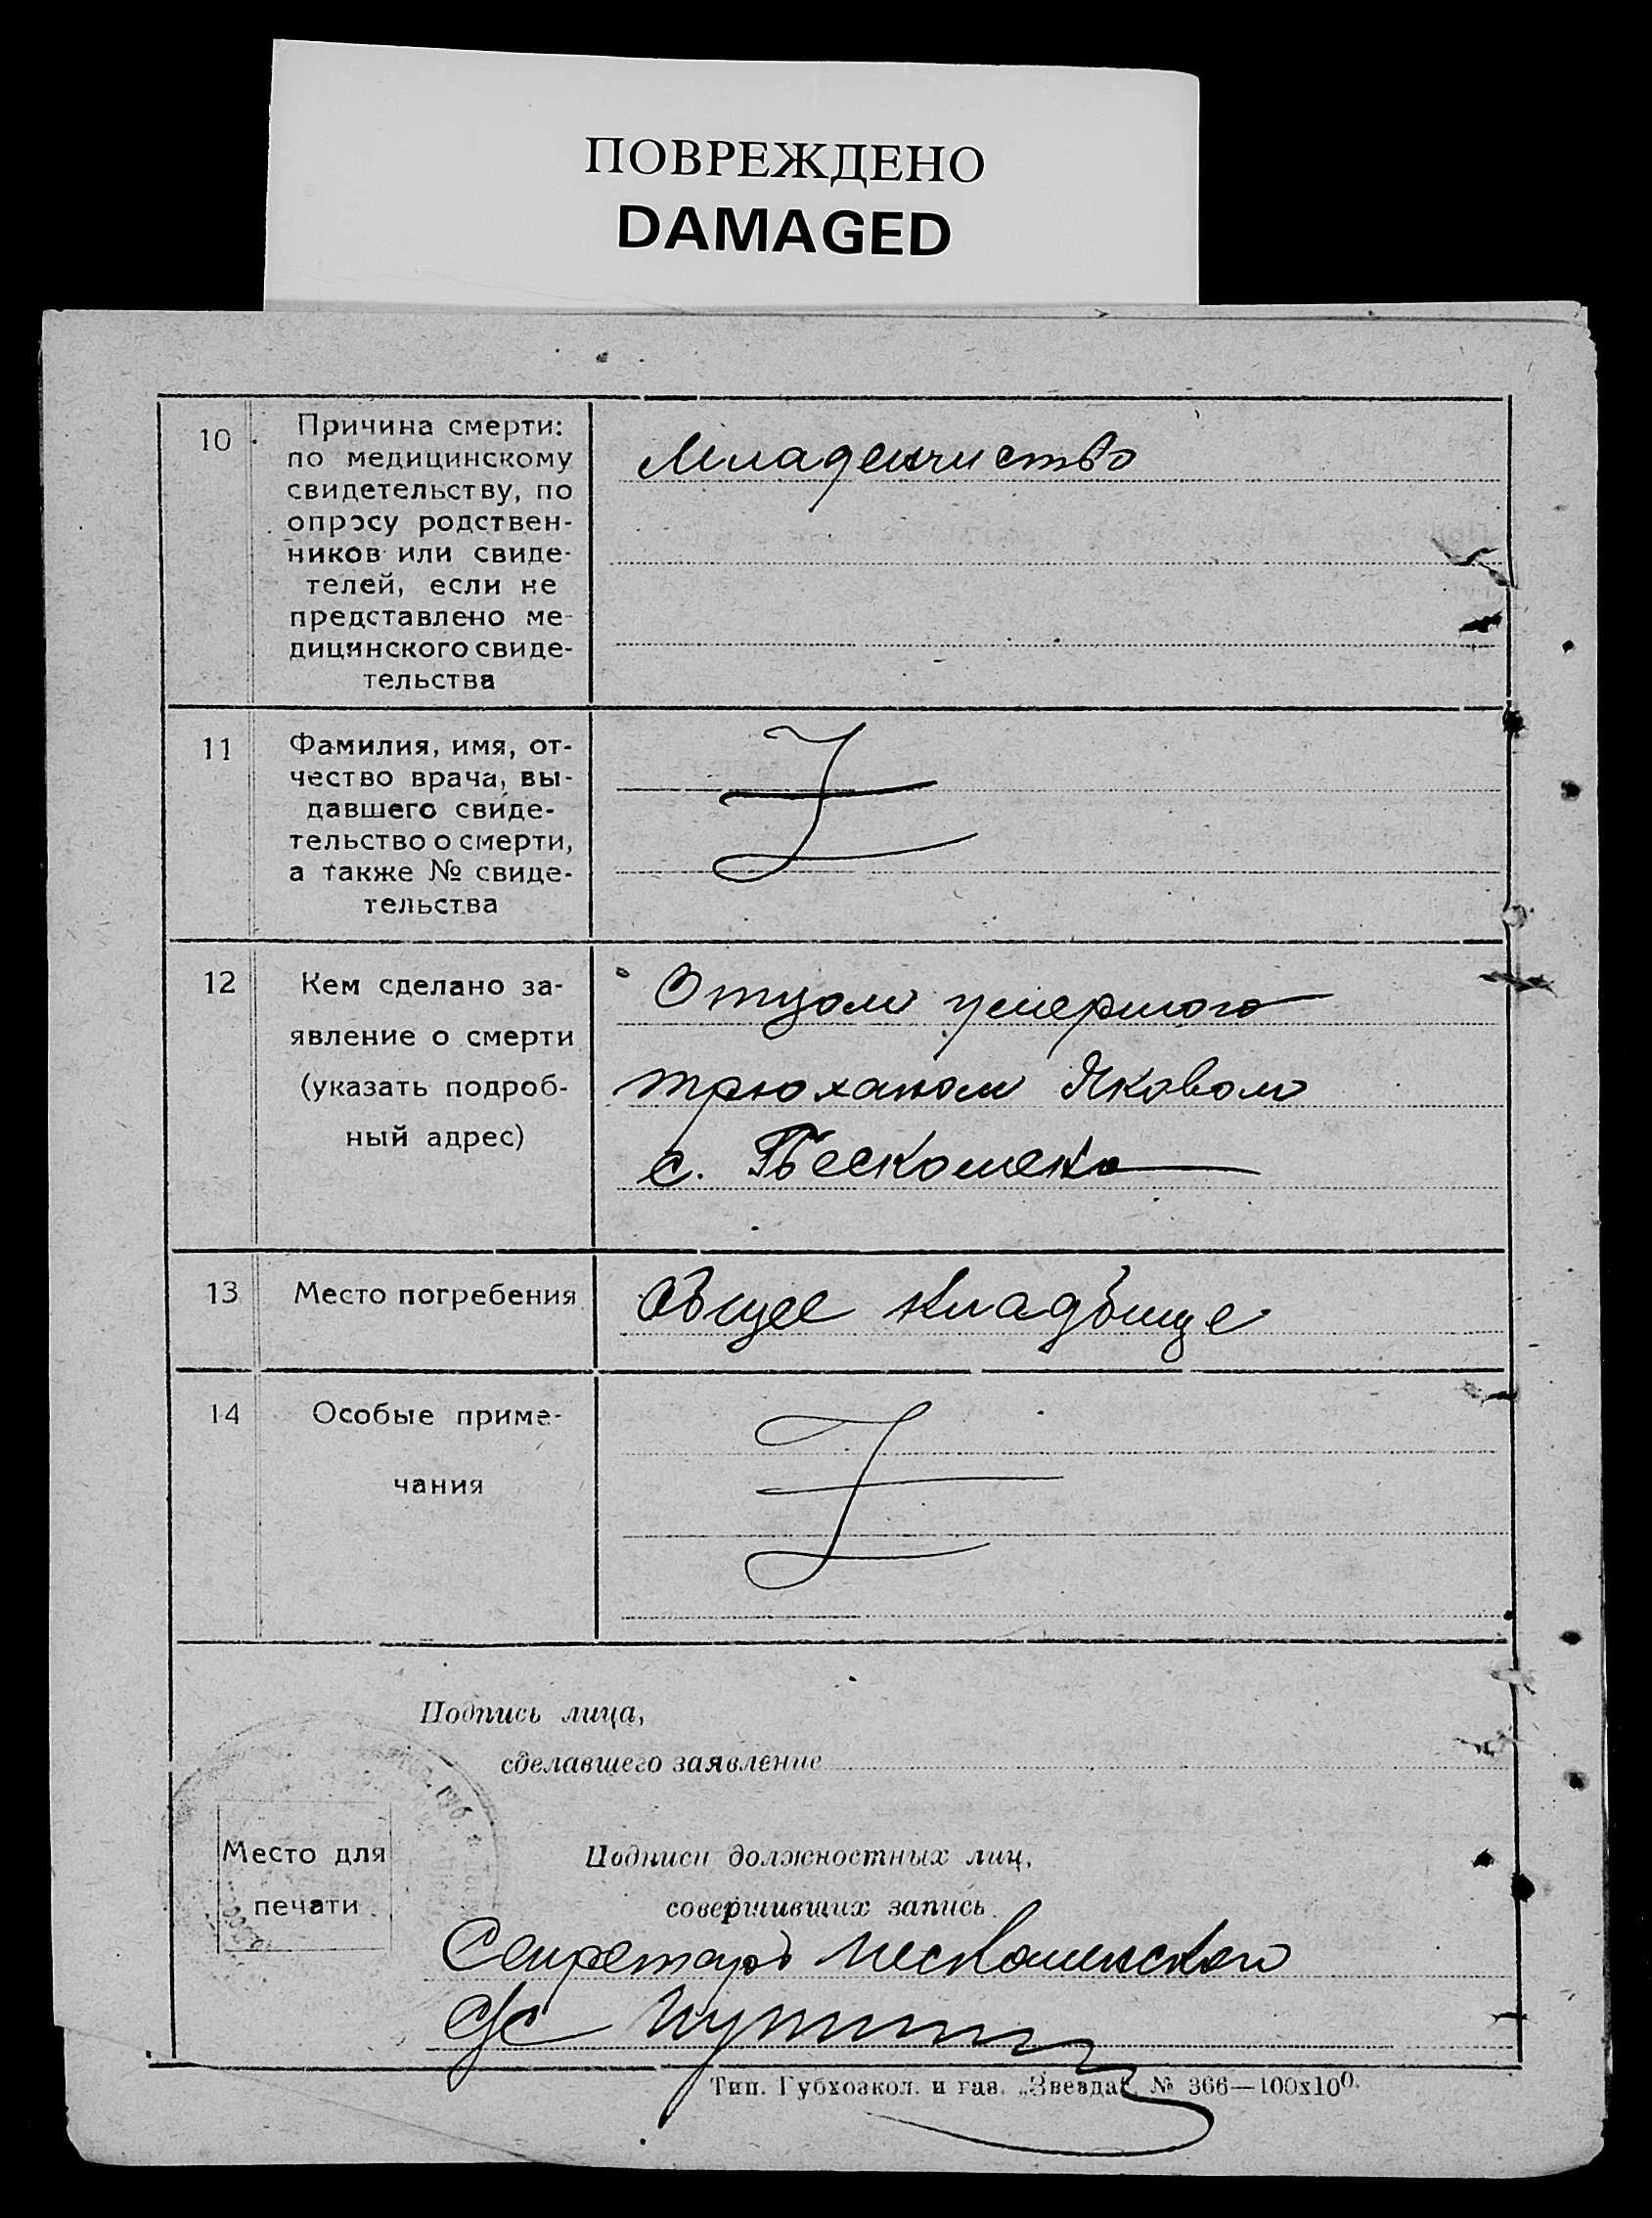 ПОВРЕЖДЕНО
DAMAGED
10
Причина смерти:
по медицинскому
свидетельству, по
опросу родствен-
ников или свиде-
телей, если не
представлено ме-
дицинского свиде-
тельства
Младенчиство
11
Фамилия, имя, от-
чество врача, вы-
давшего свиде-
тельство о смерти,
а также № свиде-
тельства
12
Кем сделано за-
явление о смерти
(указать подроб-
ный адрес)
Отцом умершого
Трюханом Яковом
с.
13
Место погребения
Общее кладбище
14
Особые приме-
чания
Подпись лица,
сделавшего заявление
Место для
печати
Подписи должностных лиц,
совершивших запись.
Секретарь
с/с
Тип. Губхозкол. и газ. „Звезда". № 366—100х100.